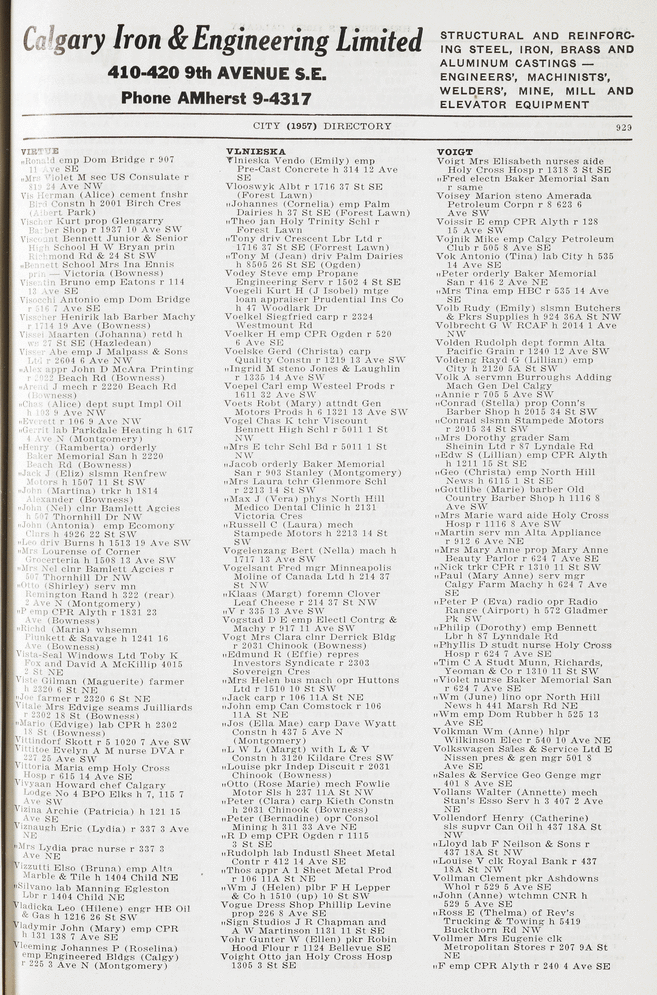 Calgary Iron & Engineering Limited
410-420 9th AVENUE S.E.
Phone AMherst 9-4317
STRUCTURAL AND REINFORC-
ING STEEL, IRON, BRASS AND
ALUMINUM CASTINGS —
ENGINEERS', MACHINISTS',
WELDERS', MINE, MILL AND
ELEVATOR EQUIPMENT
CITY (1957) DIRECTORY
929
VIRTUE
"Ronald emp Dom Bridge r 907
11 Ave SE
"Mrs Violet M sec US Consulate r
819 24 Ave NW
Vis Herman (Alice) cement fnshr
Bird Constn h 2001 Birch Cres
(Albert Park)
Vischer Kurt prop Glengarry
Barber Shop r 1937 10 Ave SW
Viscount Bennett Junior & Senior
High School H W Bryan prin
Richmond Rd & 24 St SW
"Bennett School Mrs Ina Ennis
prin — Victoria (Bowness)
Visentin Bruno emp Eatons r 114
13 Ave SE
Visocchi Antonio emp Dom Bridge
r 816 7 Ave SE
Visscher Henirik lab Barber Machy
r 1714 19 Ave (Bowness)
Visser Maarten (Johanna) retd h
ws 27 St SE (Hazledean)
Visser Abe emp J Malpass & Sons
Ltd r 2604 6 Ave NW
"Alex appr John D McAra Printing
r 2022 Beach Rd (Bowness)
"Arend J mech r 2220 Beach Rd
(Bowness)
"Chas (Alice) dept supt Impl Oil
h 103 9 Ave NW
"Everett r 106 9 Ave NW
"Gerrit lab Parkdale Heating h 617
4 Ave N (Montgomery)
"Henry (Ramberta) orderly
Baker Memorial San h 2220
Beach Rd (Bowness)
"Jack J (Eliz) slsmn Renfrew
Motors h 1507 11 St SW
"John (Martina) trkr h 1814
Alexander (Bowness)
"John (Nel) clnr Bamlett Agcies
h 507 Thornhill Dr NW
"John (Antonia) emp Ecomony
Clnrs h 4926 22 St SW
"Leo driv Burns h 1513 19 Ave SW
"Mrs Lourense of Corner
Grocerteria h 1508 13 Ave SW
"Mrs Nel clnr Bamlett Agcies r
507 Thornhill Dr NW
"Otto (Shirley) serv mn
Remington Rand h 322 (rear)
2 Ave N (Montgomery)
"P emp CPR Alyth r 1831 23
Ave (Bowness)
"Richd (Maria) whsemn
Plunkett & Savage h 1241 16
Ave (Bowness)
Vista-Seal Windows Ltd Toby K
Fox and David A McKillip 4015
2 St NE
Viste Gilman (Maguerite) farmer
h 2320 6 St NE
"Joe farmer r 2320 6 St NE
Vitale Mrs Edvige seams Juilliards
r 2302 18 St (Bowness)
"Mario (Edvige) lab CPR h 2302
18 St (Bowness)
Vittindorf Skott r 5 1020 7 Ave SW
Vittitoe Evelyn A M nurse DVA r
227 25 Ave SW
Vittoria Maria emp Holy Cross
Hosp r 615 14 Ave SE
Vivyaan Howard chef Calgary
Lodge No 4 BPO Elks h 7, 115 7
Ave SW
Vizina Archie (Patricia) h 121 15
Ave SE
Viznaugh Eric (Lydia) r 337 3 Ave
NE
"Mrs Lydia prac nurse r 337 3
Ave NE
Vizzutti Elso (Bruna) emp Alta
Marble & Tile h 1404 Child NE
"Silvano lab Manning Egleston
Lbr r 1404 Child NE
Vladicka Leo (Hilene) engr HB Oil
& Gas h 1216 26 St SW
Vladymir John (Mary) emp CPR
h 131 138 7 Ave SE
Vleeming Johannes P (Roselina)
emp Engineered Bldgs (Calgy)
r 225 3 Ave N (Montgomery)
VLNIESKA
Vlnieska Vendo (Emily) emp
Pre-Cast Concrete h 314 12 Ave
SE
Vlooswyk Albt r 1716 37 St SE
(Forest Lawn)
"Johannes (Cornelia) emp Palm
Dairies h 37 St SE (Forest Lawn)
"Theo jan Holy Trinity Schl r
Forest Lawn
"Tony driv Crescent Lbr Ltd r
1716 37 St SE (Forrest Lawn)
"Tony M (Jean) driv Palm Dairies
h 8505 26 St SE (Ogden)
Vodey Steve emp Propane
Engineering Serv r 1502 4 St SE
Voegeli Kurt H (J Isobel) mtge
loan appraiser Prudential Ins Co
h 47 Woodlark Dr
Voelkel Siegfried carp r 2324
Westmount Rd
Voelker H emp CPR Ogden r 520
6 Ave SW
Voelske Gerd (Christa) carp
Quality Constn r 1219 13 Ave SW
"Ingrid M steno Jones & Laughlin
r 1335 14 Ave SW
Voepel Carl emp Westeel Prods r
1611 32 Ave SW
Voets Robt (Mary) attndt Gen
Motors Prods h 6 1321 13 Ave SW
Vogel Chas K tchr Viscount
Bennett High Schl r 5011 1 St
NW
"Mrs E tchr Schl Bd r 5011 1 St
NW
"Jacob orderly Baker Memorial
San r 903 Stanley (Montgomery)
"Mrs Laura tchr Glenmore Schl
r 2213 14 St SW
"Max J (Vera) phys North Hill
Medico Dental Clinic h 2131
Victoria Cres
"Russell C (Laura) mech
Stampede Motors h 2213 14 St
SW
Vogelenzang Bert (Nella) mach h
1717 13 Ave SW
Vogelsant Fred mgr Minneapolis
Moline of Canada Ltd h 214 37
St NW
"Klaas (Margt) foremn Clover
Leaf Cheese r 214 37 St NW
"V r 335 13 Ave SW
Vogstad D E emp Electl Contrg &
Machy r 917 11 Ave SW
Vogt Mrs Clara clnr Derrick Bldg
r 2031 Chinook (Bowness)
"Edmund R (Effie) repres
Investors Syndicate r 2303
Sovereign Cres
"Mrs Helen bus mach opr Huttons
Ltd r 1510 10 St SW
"Jack carp r 106 11A St NE
"John emp Can Comstock r 106
11A St NE
"Jos (Ella Mae) carp Dave Wyatt
Constn h 437 5 Ave N
(Montgomery)
"L W L (Margt) with L & V
Constn h 3120 Kildare Cres SW
"Louise pkr Indep Discuit r 2031
Chinook (Bowness)
"Otto (Rose Marie) mech Fowlie
Motor Sls h 237 11A St NW
"Peter (Clara) carp Kieth Constn
h 2031 Chinook (Bowness)
"Peter (Bernadine) opr Consol
Mining h 311 33 Ave NE
"R D emp CPR Ogden r 1115
3 St SE
"Rudolph lab Industl Sheet Metal
Contr r 412 14 Ave SE
"Thos appr A 1 Sheet Metal Prod
r 106 11A St NE
"Wm J (Helen) plbr F H Lepper
& Co h 1510 (up) 10 St SW
Vogue Dress Shop Phillip Levine
prop 226 8 Ave SE
"Sign Studios J R Chapman and
A W Martinson 1131 11 St SE
Vohr Gunter W (Ellen) pkr Robin
Hood Flour r 1124 Bellevue SE
Voight Otto jan Holy Cross Hosp
1305 3 St SE
VOIGT
Voigt Mrs Elisabeth nurses aide
Holy Cross Hosp r 1318 3 St SE
"Fred electn Baker Memorial San
r same
Voisey Marion steno Amerada
Petroleum Corpn r 8 623 6
Ave SW
Voissir E emp CPR Alyth r 128
15 Ave SW
Vojnik Mike emp Calgy Petroleum
Club r 505 8 Ave SE
Vok Antonio (Tina) lab City h 535
14 Ave SE
"Peter orderly Baker Memorial
San r 416 2 Ave NE
"Mrs Tina emp HBC r 535 14 Ave
SE
Volb Rudy (Emily) slsmn Butchers
& Pkrs Supplies h 924 36A St NW
Volbrecht G W RCAF h 2014 1 Ave
NW
Volden Rudolph dept formn Alta
Pacific Grain r 1240 12 Ave SW
Voldeng Rayd G (Lillian) emp
City h 2120 5A St SW
Volk A servmn Burroughs Adding
Mach Gen Del Calgy
"Annie r 705 5 Ave SW
"Conrad (Stella) prop Conn's
Barber Shop h 2015 34 St SW
"Conrad slsmn Stampede Motors
r 2015 34 St SW
"Mrs Dorothy grader Sam
Sheinin Ltd r 87 Lyndale Rd
"Edw S (Lillian) emp CPR Alyth
h 1211 15 St SE
"Geo (Christa) emp North Hill
News h 6115 1 St SE
"Gottlibe (Marie) barber Old
Country Barber Shop h 1116 8
Ave SW
"Mrs Marie ward aide Holy Cross
Hosp r 1116 8 Ave SW
"Martin serv mn Alta Appliance
r 912 6 Ave NE
"Mrs Mary Anne prop Mary Anne
Beauty Parlor r 624 7 Ave SE
"Nick trkr CPR r 1310 11 St SW
"Paul (Mary Anne) serv mgr
Calgy Farm Machy h 624 7 Ave
SE
"Peter P (Eva) radio opr Radio
Range (Airport) h 572 Gladmer
Pk SW
"Philip (Dorothy) emp Bennett
Lbr h 87 Lynndale Rd
"Phyllis D studt nurse Holy Cross
Hosp r 624 7 Ave SE
"Tim C A Studt Munn, Richards,
Yeoman & Co r 1310 11 St SW
"Violet nurse Baker Memorial San
r 624 7 Ave SW
"Wm (June) lino opr North Hill
News h 441 Marsh Rd NE
"Wm emp Dom Rubber h 525 13
Ave SE
Volkman Wm (Anne) hlpr
Wilkinson Elec r 540 10 Ave NE
Volkswagen Sales & Service Ltd E
Nissen pres & gen mgr 501 8
Ave SE
"Sales & Service Geo Genge mgr
401 8 Ave SE
Vollans Walter (Annette) mech
Stan's Esso Serv h 3 407 2 Ave
NE
Vollendorf Henry (Catherine)
sls supvr Can Oil h 437 18A St
NW
"Lloyd lab F Neilson & Sons r
437 18A St NW
"Louise V clk Royal Bank r 437
18A St NW
Vollman Clement pkr Ashdowns
Whol r 529 5 Ave SE
"John (Anne) wtchmn CNR h
529 5 Ave SE
"Ross E (Thelma) of Rev's
Trucking & Towing h 5419
Buckthorn Rd NW
Vollmer Mrs Eugenie clk
Metropolitan Stores r 207 9A St
NE
"F emp CPR Alyth r 240 4 Ave SE